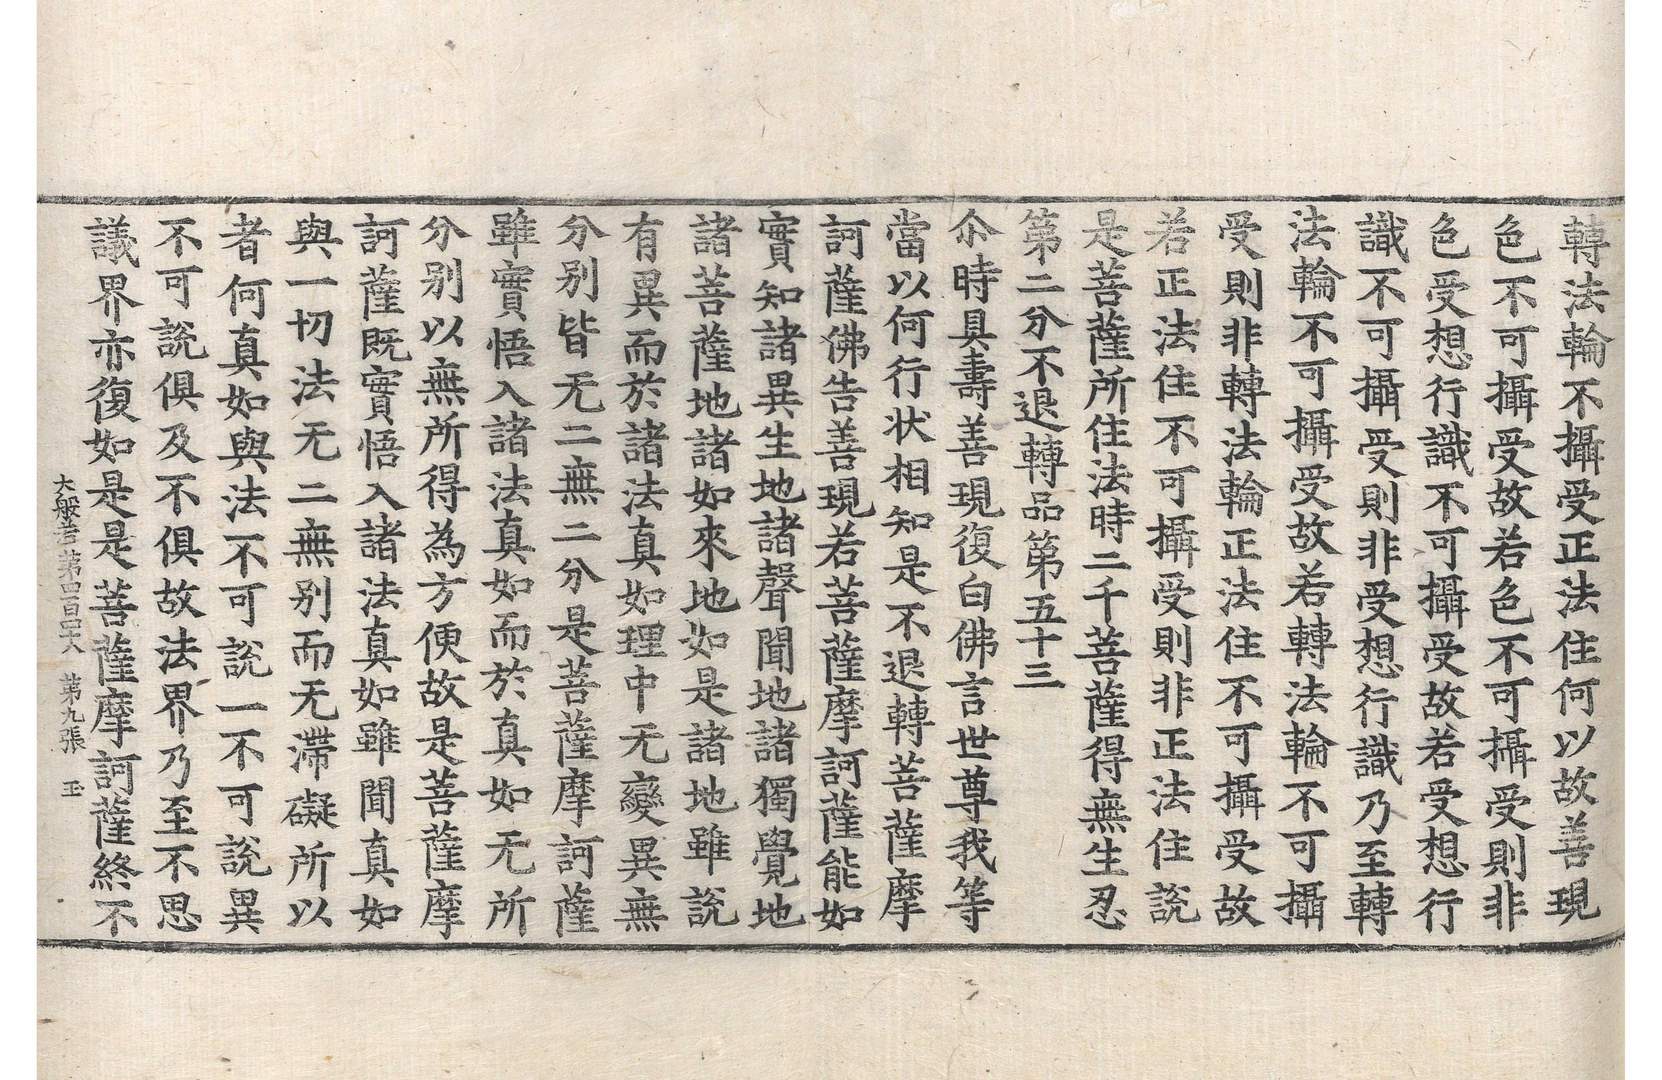 轉法輪不攝受正法住何以故善現
色不可攝受故若色不可攝受則非
色受想行識不可攝受故若受想行
識不可攝受則非受想行識乃至轉
法輪不可攝受故若轉法輪不可攝
受則非轉法輪正法住不可攝受故
若正法住不可攝受則非正法住說
是菩薩所住法時二千菩薩得無生忍
第二分不退轉品第五十三
尒時具壽善現復白佛言世尊我等
當以何行狀相知是不退轉菩薩摩
訶薩佛告善現若菩薩摩訶薩能如
實知諸異生地諸聲聞地諸獨覺地
諸菩薩地諸如來地如是諸地雖說
有異而於諸法真如理中无變異無
分別皆无二無二分是菩薩摩訶薩
雖實悟入諸法真如而於真如无所
分別以無所得為方便故是菩薩摩
訶薩既實悟入諸法真如雖聞真如
與一切法无二無別而无滯礙所以
者何真如與法不可說一不可說異
不可說俱及不俱故法界乃至不思
議界亦復如是是菩薩摩訶薩終不
大般若第四百四十八 第九張 玉